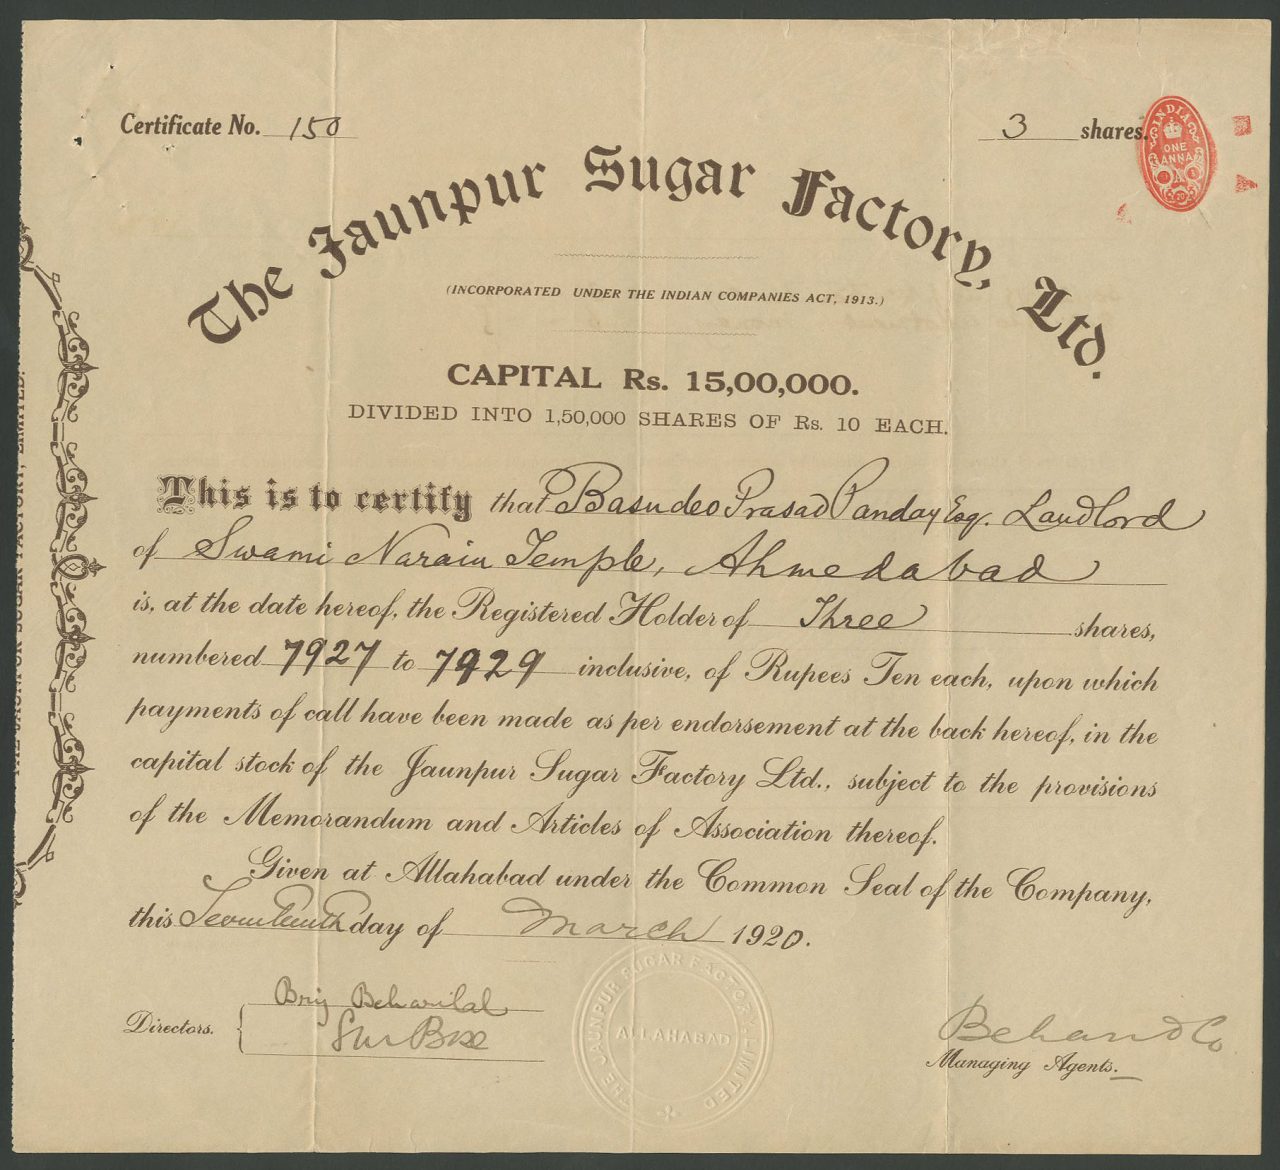 Certificate No. 150
3 shares.
INDIA
ONE
ANNA
The Jaunpur Sugar Factory, Ltd.
(INCORPORATED UNDER THE INDIAN COMPANIES ACT, 1913.)
CAPITAL Rs. 15,00,000.
DIVIDED INTO 1,50,000 SHARES OF Rs. 10 EACH.
This is to certify that Basudeo Prasad Panday Esq. Landlord
of Swami Narain Temple, Ahmedabad
is, at the date hereof, the Registered Holder of Three shares,
numbered 7927 to 7929 inclusive, of Rupees Ten each, upon which
payments of call have been made as per endorsement at the back hereof, in the
capital stock of the Jaunpur Sugar Factory Ltd., subject to the provisions
of the Memorandum and Articles of Association thereof.
Given at Allahabad under the Common Seal of the Company,
this Seventeenth day of March 1920.
Directors.
Brij Beharilal
THE JAUNPUR SUGAR FACTORY LIMITED
ALLAHABAD
Beh and Co
Managing Agents.